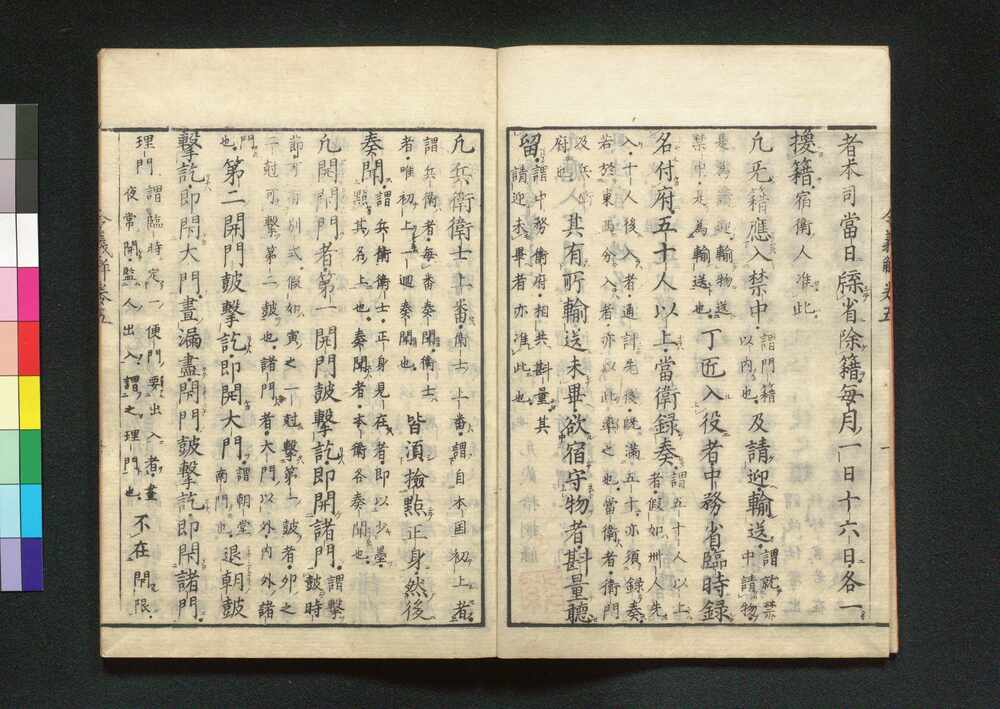 者本司當日牒省除籍毎月一日十六日各一
換籍宿衛人准此
凡无籍應入禁中謂門籍
以内也及請迎輸送謂就禁
中請物
是為請迎輸物送
禁中是為輸送也丁匠入役者中務省臨時録
名付府五十人以上當衛録奏謂五十人以上
者假如卅人先
入十人後入者通計先後既滿五十亦須録奏
若於東西分入者亦以此乗之也當衛者衛門
及兵衛
府也其有所輸送未畢欲宿守物者斟量聽
留謂中務衛府相共斟量其
請迎未畢者亦准此也
令義解巻五
凡兵衛衛士上番衛士上番謂自本国初上者
謂兵衛者毎番奏聞衛士
者唯初上一廻奏聞也皆須撿點正身然後
奏聞謂兵衛衛士正身見在者即以少墨
點其名上也奏聞者本衛各奏聞也
凡開閇門者第一開門皷撃訖即開諸門謂撃
皷時
節可有別式假如寅之一尅撃第一皷者卯之
一尅可撃第二皷也諸門者大門以外内外諸
門
也第二開門皷撃訖即開大門謂朝堂
南門也退朝皷
撃訖即閇大門晝漏盡閇門皷撃訖即閇諸門
理門謂臨時定一便門要出入者晝
夜常開監人出入謂之理門也不在開限